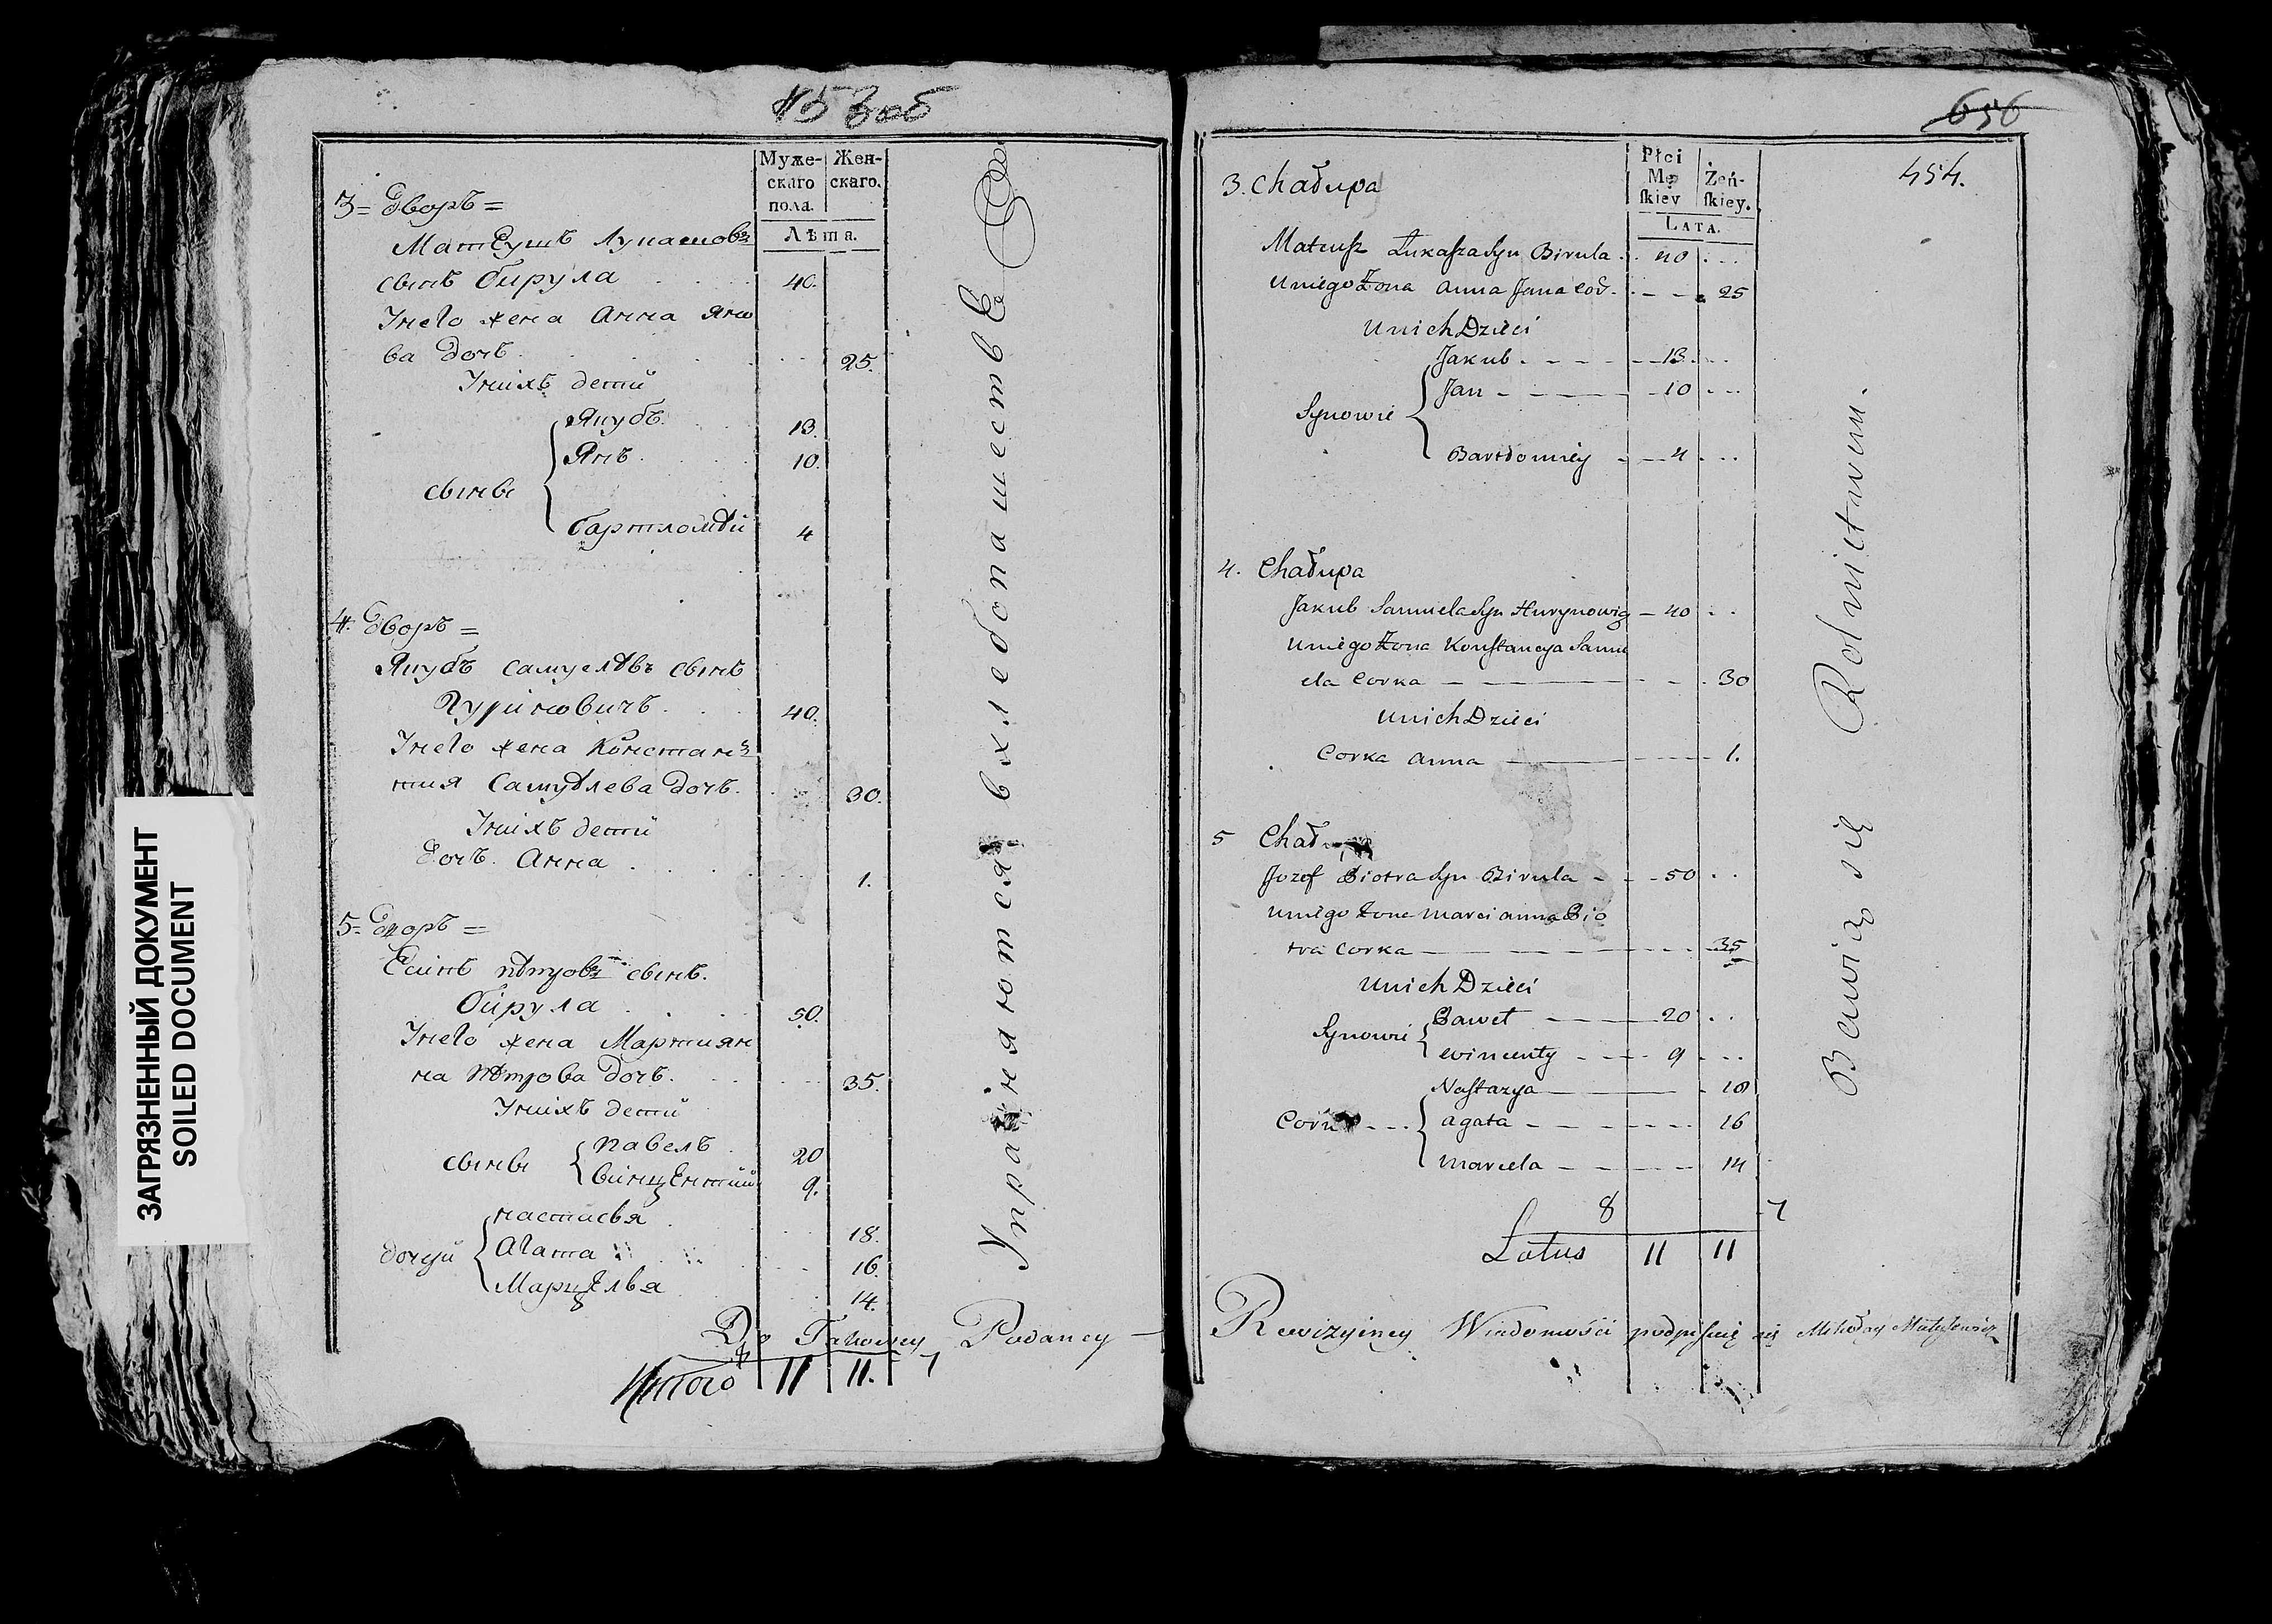 453 об
Муже-
скаго
пола.
Жен-
скаго.
Лѣта.
3= Дворъ =
Матеушъ Лукашовъ
сынъ Бирула 40.
Унего жена Анна Яно
ва дочь 25.
Унихъ дети
Якубъ 13.
Янъ 10.
сыны
Бартломѣй 4
4. Дворъ =
Якубъ Самуелѣвъ сынъ
Гуриновичъ 40.
Унего жена Констан
ция Самуѣлева дочь. 30.
Унихъ дети
Дочь Анна 1.
5= Дворъ =
Есипъ пѣтровъ сынъ.
Бирула 50.
Унего жена Марциян
на Пѣтрова дочь. 35.
Унихъ дети
сыны
Павелъ 20
Винцентий 9.
дочери
настасья 18.
Агата 16.
Марцелья 14.
Упражняются в хлебопашестве
Do Takowey Podaney
Итого 11 11. 7
ЗАГРЯЗНЕННЫЙ ДОКУМЕНТ
SOILED DOCUMENT
656
454.
Płci
Mę
skiey
Żeń-
skiey.
LATA.
3. Chałupa
Mateusz Łukasza Syn Birula 40
U niego Żona Anna Jana Cor. 25
U nich Dzieci
Jakub 13
Jan 10
Synowie
Bartłomiey 4
4. Chałupa
Jakub Samuela Syn Hurynowicz 40
U niego Żona Konstancya Samu
ela Corka 30
U nich Dzieci
Corka Anna 1.
5 Chału
Jozef Piotra Syn Birula 50
U niego Żona Marcianna Pio
tra Corka 35
U nich Dzieci
Synowie
Paweł 20
Wincenty 9
Nastazya 18
Agata 16
Marcela 14
8 7
Latus 11 11
Bawią się Rolnictwem.
Rewizyiney Wiadomości podpisuię się Mikołay Matusewicz